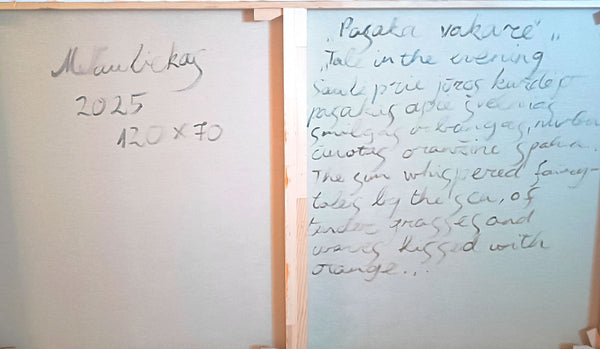 2025
120 x 70
„Pasaka vakare“,,
„Tale in the evening
Saulė prie jūros kuždėjo
pasakas apie švelnias
smilgas ir bangas,
oranžine spalva.
The sun whispered fairy-
tales by the sea, of
tender grasses and
waves kissed with
orange...